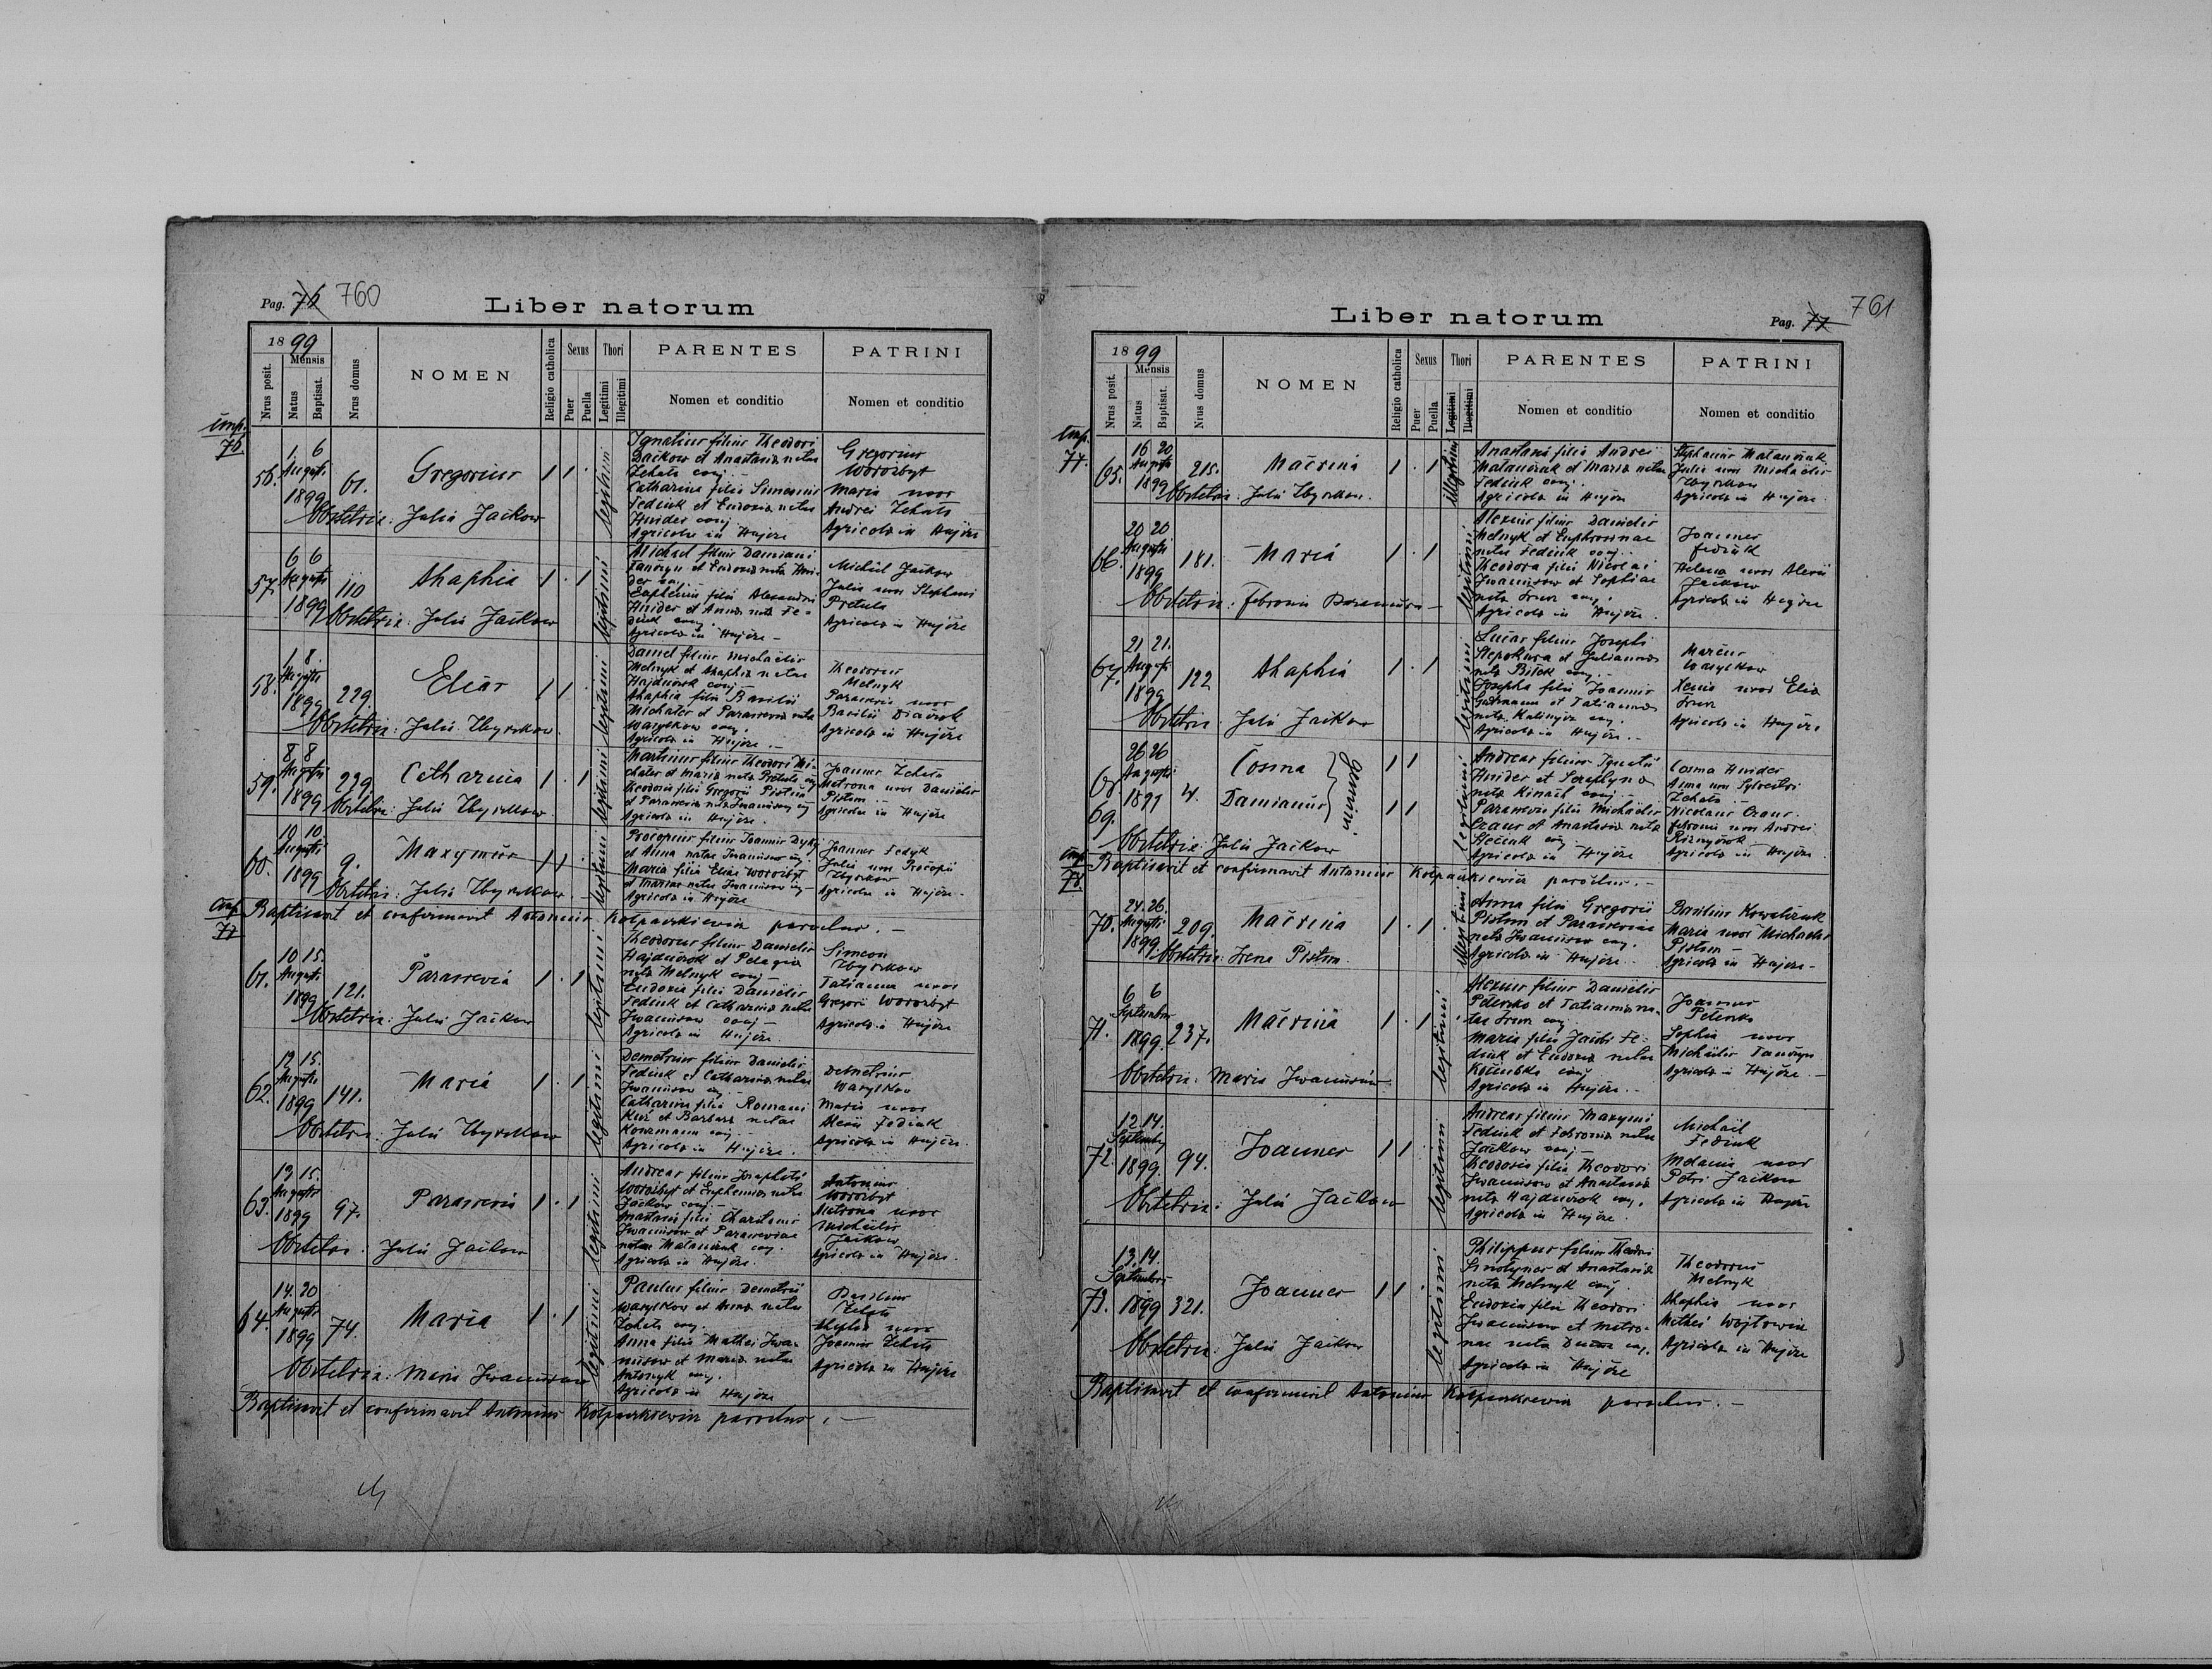 Pag. 76 760
Liber natorum
1899
Mensis
Nrus posit.
Natus
Baptisat.
Nrus domus
NOMEN
Religio catholica
Sexus
Puer
Puella
Thori
Legitimi
Illegitimi
PARENTES
Nomen et conditio
PATRINI
Nomen et conditio
imp.
76.
56. 1 6 Augusti 1899 61. Gregorius 1 1 · legitimi
Ignatius filius Theodori
Jačkow et Anastasia natae
Zehata conj.
Catharina filia Simeonis
Fediuk et Eudoxia natae
Hnider conj.
Agricolae in Hujcze
Gregorius
Worozbyt
Maria uxor
Andrei Zehata
Agricola in Hujcze
Obstetrix: Julia Jačkow
57. 6 6 Augusti 1899 110 Ahaphia 1 · 1 legitimi
Michael filius Damiani
et Eudoxia nata Hni-
der conj.
Euphemia filia Alexandri
Hnider et Anna nata Fe-
diuk conj.
Agricola in Hujcze
Michael Jačkow
Julia uxor Stephani
Pretula
Agricola in Hujcze
Obstetrix: Julia Jačkow
58. 1 8 Augusti 1899 229. Elias 1 1 · legitimi
Daniel filius Michaelis
Melnyk et Ahaphia natae
Hajduczok conj.
Ahaphia filia Basilii
Michalec et Parascevia nata
Wasylkow conj.
Agricola in Hujcze
Theodorus
Melnyk
Parascevia uxor
Basilii
Agricola in Hujcze
Obstetrix: Julia Zbyrkow
59. 8 8 Augusti 1899 229. Catharina 1 · 1 legitimi
Martinus filius Theodori Mi-
chalec et Maria nata Pretula conj.
Theodosia filia Gregorii Pistun
et Parascevia nata Iwanisow conj.
Agricola in Hujcze.
Joannes Zehata
Matrona uxor Danielis
Pistun
Agricola in Hujcze
Obstetrix: Julia Zbyrkow
60. 10 10 Augusti 1899 9. Maxymus 1 1 legitimi
Procopius filius Joannis Dyky
et Anna natae Iwanisow conj.
Maria filia Eliae Worozbyt
et Mariae natae Iwanisow conj.
Agricola in Hujcze
Joannes Fedyk
Julia uxor Procopii
Zbyrkow
Agricola in Hujcze
Obstetrix: Julia Zbyrkow
Baptisavit et confirmavit Antonius Kolpaczkiewicz parochus.
imp.
77
61. 10 15. Augusti 1899 121. Parascevia 1 · 1 legitimi
Theodorus filius Danielis
Hajduczok et Pelagia
nata Melnyk conj.
Eudoxia filia Danielis
Fediuk et Catharina natae
Iwanisow conj.
Agricola in Hujcze
Simeon
Zbyrkow
Tatianna uxor
Gregorii Worozbyt
Agricola in Hujcze
Obstetrix: Julia Jačkow
62. 13 15. Augusti 1899 141. Maria 1 · 1 legitimi
Demetrius filius Danielis
Fediuk et Catharina natae
Iwanisow conj.
Catharina filia Romani
et Barbara natae
conj.
Agricola in Hujcze.
Demetrius
Wasylkow
Maria uxor
Alexii Fediuk
Agricola in Hujcze.
Obstetrix: Julia Zbyrkow
63. 13 15. Augusti 1899 97. Parascevia 1 · 1 legitimi
Andreas filius Josaphati
Worozbyt et Euphemia natae
Jačkow conj.
Anastasia filia Charitonis
Iwanisow et Parasceviae
natae Matanczuk conj.
Agricola in Hujcze.
Antonius
Worozbyt
Matrona uxor
Michaelis
Jačkow
Agricola in Hujcze.
Obstetrix: Julia Jačkow
64. 14. 20 Augusti 1899 74. Maria 1 · 1 legitimi
Paulus filius Demetrii
Wasylkow et Anna natae
Zehata conj.
Anna filia Mathei Iwa-
nisow et Maria natae
Antonyk conj.
Agricola in Hujcze
Basilius
Zehata
uxor
Joannis Zehata
Agricola in Hujcze
Obstetrix: Maria Iwanisow
Baptisavit et confirmavit Antonius Kolpaczkiewicz parochus.
Liber natorum
Pag. 77 761
1899
Mensis
Nrus posit.
Natus
Baptisat.
Nrus domus
NOMEN
Religio catholica
Sexus
Puer
Puella
Thori
Legitimi
Illegitimi
PARENTES
Nomen et conditio
PATRINI
Nomen et conditio
imp.
77.
65. 16 20 Augusti 1899 215. Mačrina 1 · 1 illegitimi
Anastasia filia Andrei
Matanczuk et Maria natae
Fediuk conj.
Agricola in Hujcze
Stephanus Matanczuk
Julia uxor Michaelis
Zbyrkow
Agricola in Hujcze.
Obstetrix: Julia Zbyrkow.
66. 20 20 Augusti 1899 181. Maria 1 · 1 legitimi
Alexius filius Danielis
Melnyk et Euphrosinae
natae Fediuk conj.
Theodora filia Nicolai
Iwanisow et Sophiae
nata conj.
Agricola in Hujcze.
Joannes
Fediuk
Helena uxor Alexii
Jačkow
Agricola in Hujcze
Obstetrix: Febronia
67. 21 21. Augusti 1899 122 Ahaphia 1 · 1 legitimi
Lucas filius Josephi
Slepokura et Julianna
nata conj.
Josepha filia Joannis
et Tatianna
nata conj.
Agricola in Hujcze.
Marcus
Wasylkow
Xenia uxor Elia
Agricola in Hujcze
Obstetrix: Julia Jačkow
68 69. 26 26 Augusti 1899 4. Cosma Damianus } Gemini 1 1 1 1 legitimi
Andreas filius Ignatii
Hnider et
nata conj.
Parascevia filia Michaelis
et Anastasia nata
conj.
Agricola in Hujcze
Cosma Hnider
Anna uxor Sylvestri
Zehata
Nicolaus
Febronia uxor Andrei
Agricola in Hujcze.
Obstetrix: Julia Jačkow
Baptisavit et confirmavit Antonius Kolpaczkiewicz parochus.
imp.
78
70. 24. 26. Augusti 1899 209. Mačrina 1 · 1 illegitimi
Anna filia Gregorii
Pistun et Parasceviae
nata Iwanisow conj.
Agricola in Hujcze
Basilius Kowalczuk
Maria uxor Michaelis
Pistun
Agricola in Hujcze
Obstetrix: Irena Pistun
71. 6 6 Septembris 1899. 237. Mačrina 1 · 1 legitimi
Alexius filius Danielis
Petenko et Tatianna na-
tae conj.
Maria filia Jacobi Fe-
diuk et Eudoxia natae
conj.
Agricola in Hujcze.
Joannes
Petenko
Sophia uxor
Michaelis
Agricola in Hujcze.
Obstetrix: Maria Iwanisow.
72. 12 14. Septembris 1899. 94. Joannes 1 1 legitimi
Andreas filius Maxymi
Fediuk et Febronia natae
Jačkow conj.
Theodosia filia Theodori
Iwanisow et Anastasia
nata Hajduczok conj.
Agricola in Hujcze.
Michael
Fediuk
Melania uxor
Petri Jačkow
Agricola in Hujcze
Obstetrix: Julia Jačkow
73. 13. 14. Septembris 1899 321. Joannes 1 1 legitimi
Philippus filius Theodori
et Anastasia
nata Melnyk conj.
Eudoxia filia Theodori
Iwanisow et Matro-
nae nata conj.
Agricola in Hujcze
Theodorus
Melnyk
Ahaphia uxor
Mathei Wojtowicz
Agricola in Hujcze
Obstetrix: Julia Jačkow
Baptisavit et confirmavit Antonius Kolpaczkiewicz parochus.